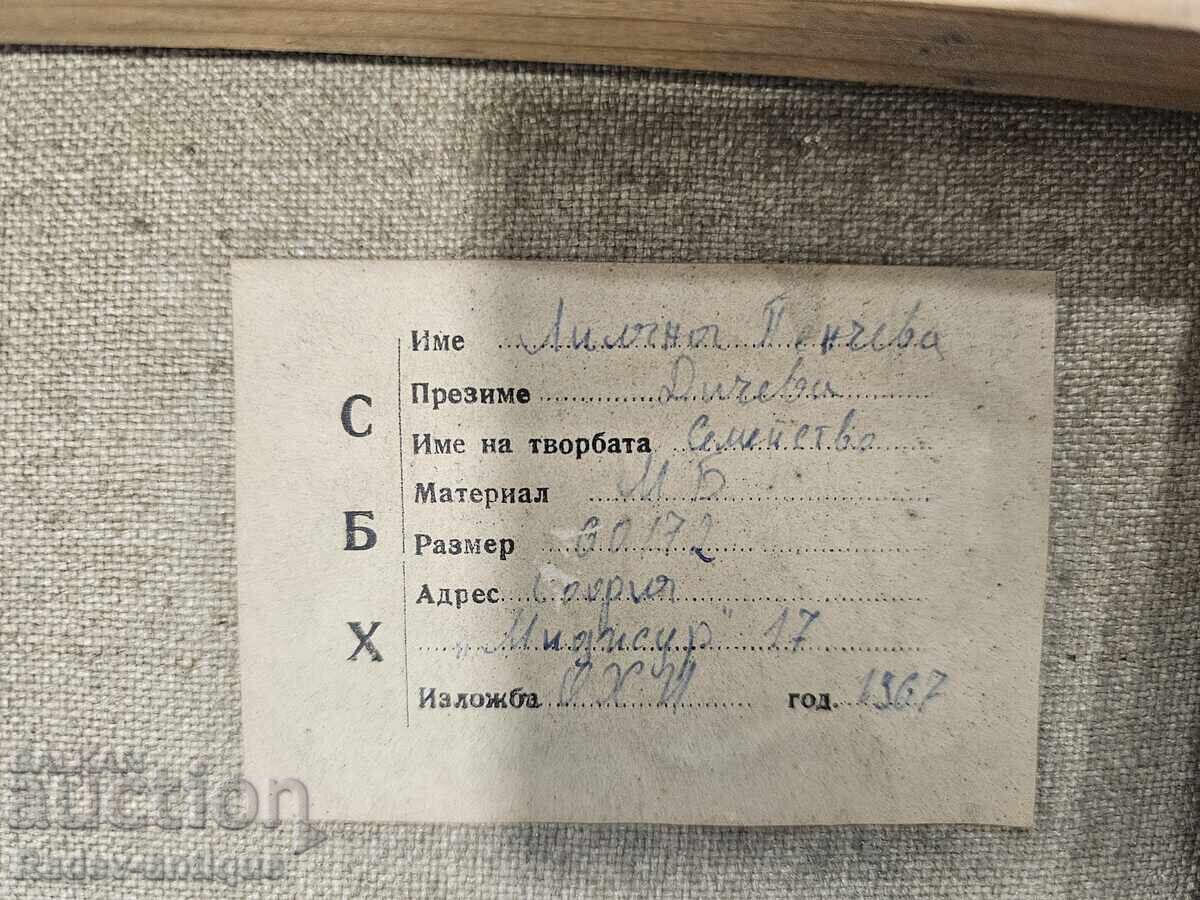 С
Б
Х
Име Лиляна Пенчева
Презиме Дичева
Име на творбата Семейство
Материал М Б
Размер 60/72
Адрес София
17
Изложба ОХИ год. 1967
BALKAN
auction
Radex-antique